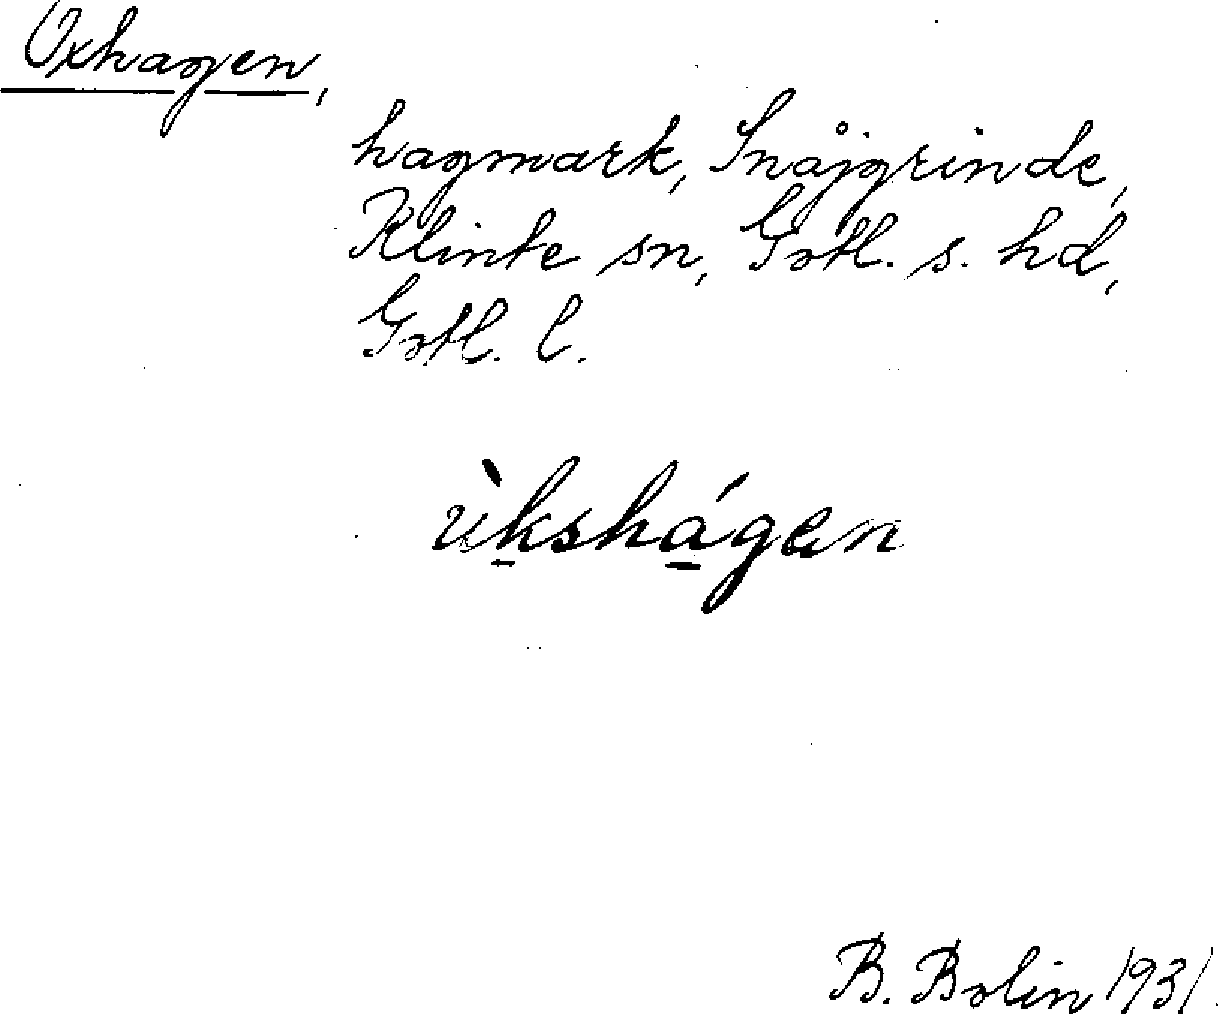 Oxhagen,
hagmark, Snåjgrinde,
Klinte sn, Gotl. s. hd,
Gotl. l.
ùk̠shá̠gen
B. Bolin 1931.